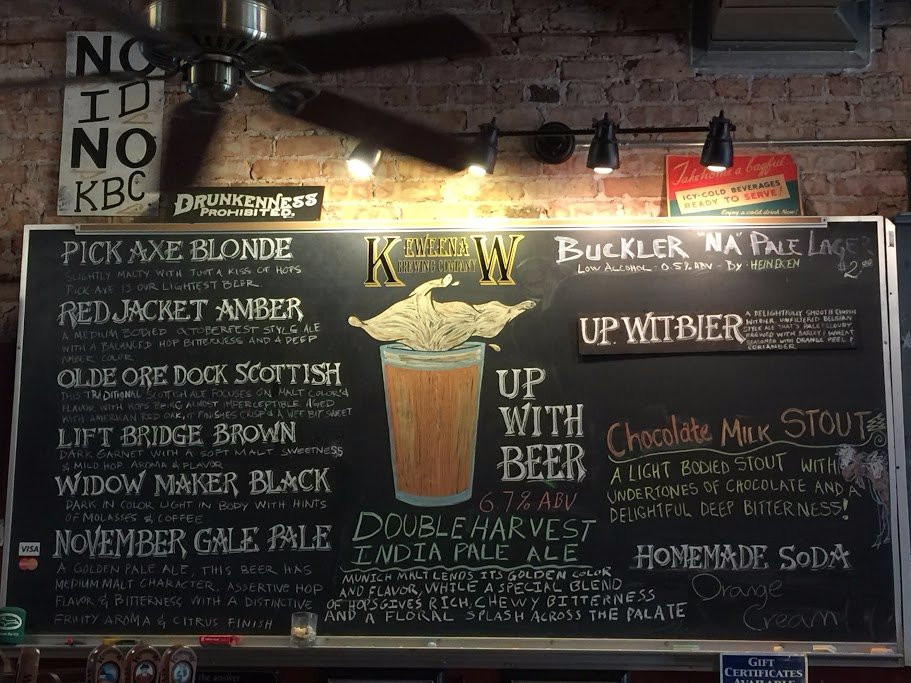 NO
ID
NO
KBC
DRUNKENNESS
PROHIBITED.
Take home a bagful
ICY-COLD BEVERAGES
READY TO SERVE!
Enjoy a cold drink Now!
PICK AXE BLONDE
SLIGHTLY MALTY WITH JUST A KISS OF HOPS
PICK AXE IS OUR LIGHTEST BEER
RED JACKET AMBER
A MEDIUM BODIED OKTOBERFEST STYLE ALE
WITH A BALANCED HOP BITTERNESS AND A DEEP
AMBER COLOR
OLDE ORE DOCK SCOTTISH
THIS TRADITIONAL SCOTTISH ALE FOCUSES ON MALT COLOR &
FLAVOR WITH HOPS BEING ALMOST IMPERCEPTIBLE AGED
WITH AMERICAN RED OAK, IT FINISHES CRISP & A WEE BIT SWEET
LIFT BRIDGE BROWN
DARK GARNET WITH A SOFT MALT SWEETNESS
& MILD HOP AROMA & FLAVOR
WIDOW MAKER BLACK
DARK IN COLOR LIGHT IN BODY WITH HINTS
OF MOLASSES & COFFEE
VISA
NOVEMBER GALE PALE
A GOLDEN PALE ALE, THIS BEER HAS
MEDIUM MALT CHARACTER, ASSERTIVE HOP
FLAVOR & BITTERNESS WITH A DISTINCTIVE
FRUITY AROMA & CITRUS FINISH
KEWEENAW
BREWING COMPANY
UP
WITH
BEER
6.7% ABV
DOUBLE HARVEST
INDIA PALE ALE
MUNICH MALT LENDS ITS GOLDEN COLOR
AND FLAVOR, WHILE A SPECIAL BLEND
OF HOPS GIVES RICH, CHEWY BITTERNESS
AND A FLORAL SPLASH ACROSS THE PALATE
BUCKLER "NA" PALE LAGER
LOW ALCOHOL - 0.5% ABV - BY HEINEKEN
$2.00
UP WITBIER
A DELIGHTFULLY SMOOTH
WITBIER. UNFILTERED BELGIAN
STYLE ALE THAT'S PALE & CLOUDY
BREWED WITH BARLEY & WHEAT
SEASONED WITH ORANGE PEEL &
CORIANDER
Chocolate MILK STOUT
A LIGHT BODIED STOUT WITH
UNDERTONES OF CHOCOLATE AND A
DELIGHTFUL DEEP BITTERNESS!
HOMEMADE SODA
Orange
Cream
GIFT
CERTIFICATES
AVAILABLE